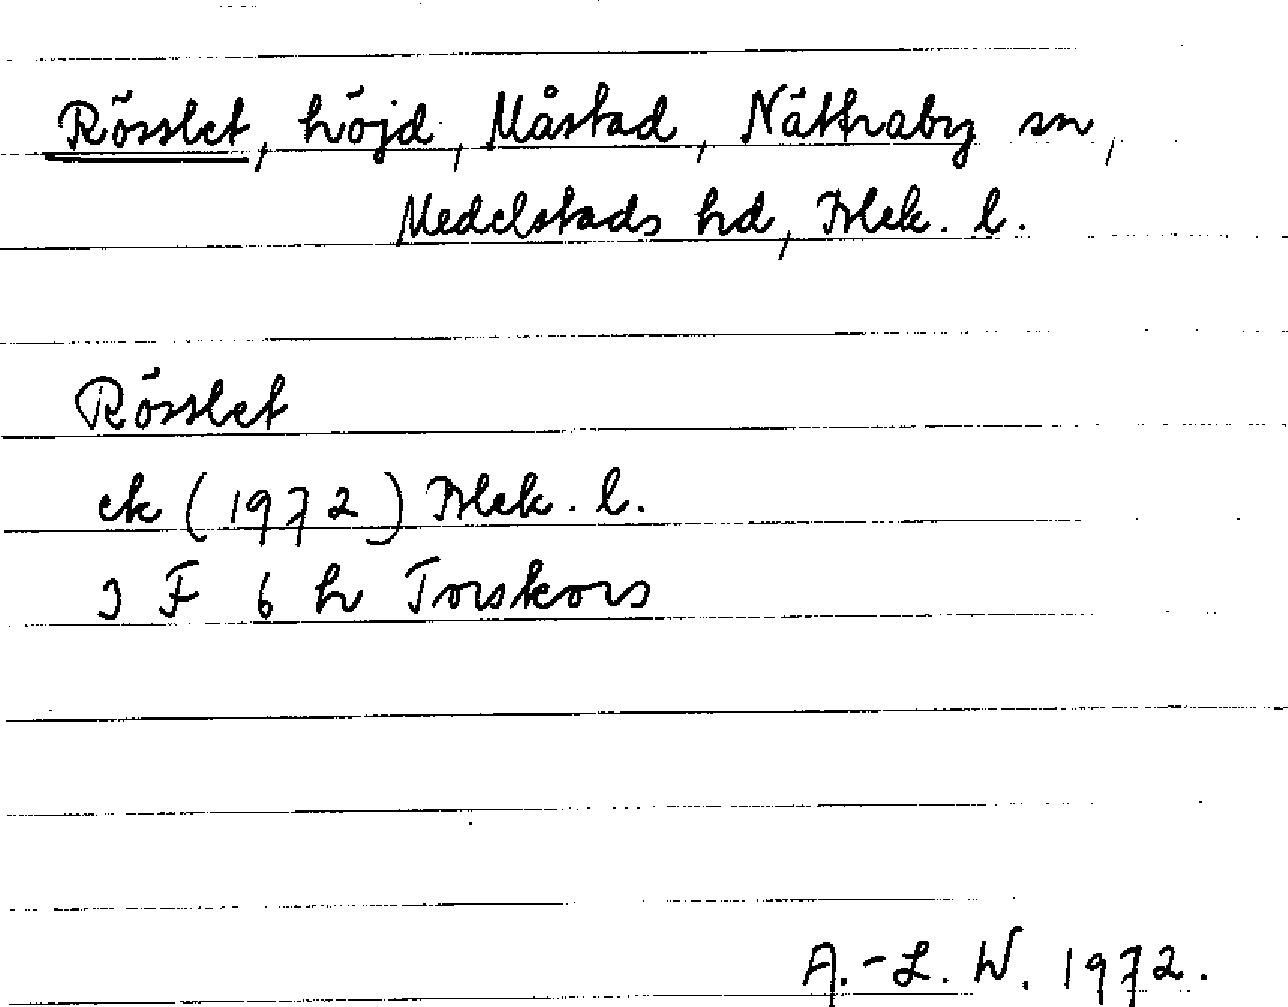 Rösslet, höjd, Måstad, Nättraby sn,
Medelstads hd, Blek. l.
Rösslet
ek (1972) Blek. l.
3 F 6 h Torskors
A.-L. W. 1972.